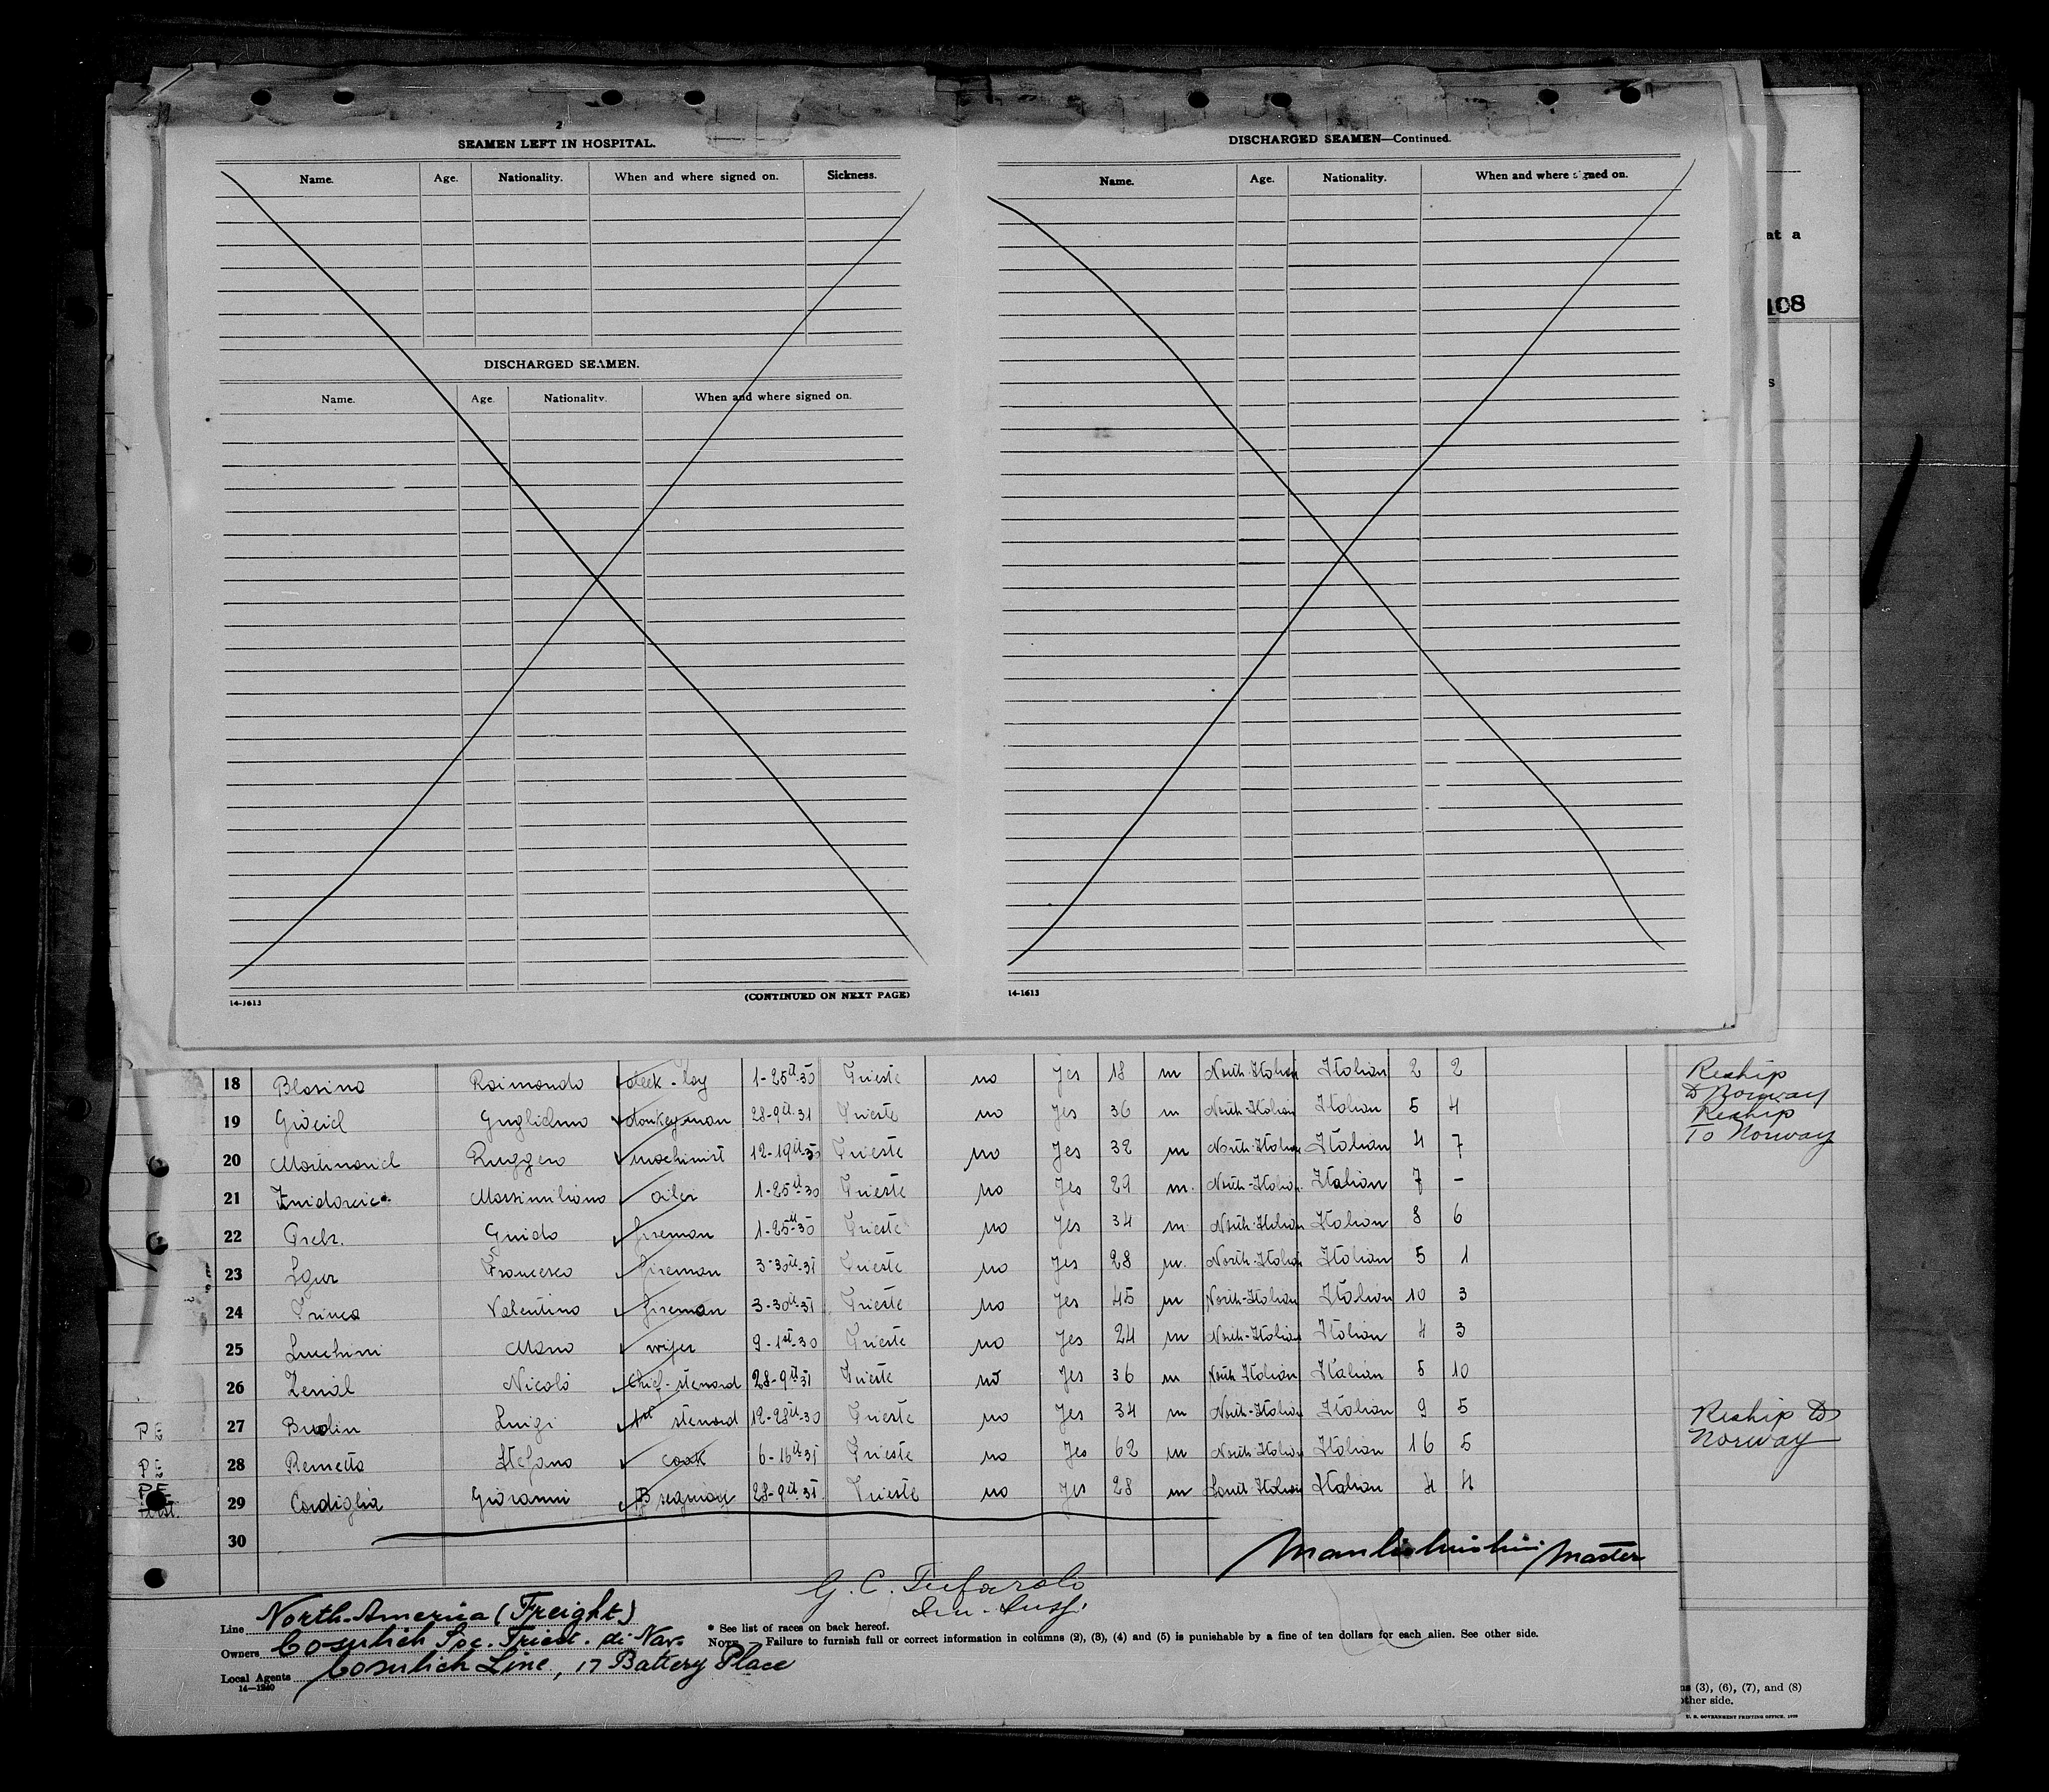 2
SEAMEN LEFT IN HOSPITAL.
Name. Age. Nationality. When and where signed on. Sickness.
DISCHARGED SEAMEN.
Name. Age. Nationality. When and where signed on.
14-1613 (CONTINUED ON NEXT PAGE)
DISCHARGED SEAMEN—Continued.
Name. Age. Nationality. When and where signed on.
14-1613
at a
108
s
18 Blasina Raimondo deck-boy 1-25th-30 Trieste no Yes 18 m North-Italian Italian 2 2 Reship to Norway
19 Guglielmo donkeyman 28-9th-31 Trieste no Yes 36 m North-Italian Italian 5 4 Reship To Norway
20 Ruggero machinist 12-19th-30 Trieste no Yes 32 m North-Italian Italian 4 7
21 Massimiliano oiler 1-25th-30 Trieste no Yes 29 m. North-Italian Italian 7 -
22 Guido fireman 1-25th-30 Trieste no Yes 34 m North-Italian Italian 8 6
23 Sgur Francesco fireman 3-30th-31 Trieste no Yes 28 m. North-Italian Italian 5 1
24 Prinea Valentino fireman 3-30th-31 Trieste no Yes 45 m North-Italian Italian 10 3
25 Lucchini Mario wiper 9-1st-30 Trieste no Yes 24 m North-Italian Italian 4 3
26 Nicolò Chief-steward 28-9th-31 Trieste no Yes 36 m North Italian Italian 5 10
PE 27 Budin Luigi 1st steward 12-28th-30 Trieste no Yes 34 m North-Italian Italian 9 5 Reship to Norway
PE 28 Remetta Stefano cook 6-16th-31 Trieste no Yes 62 m North Italian Italian 16 5
PE 29 Cordiglia Giovanni 28-9th-31 Trieste no Yes 28 m South Italian Italian 4 4
30
Master
G. C. Tufarolo
Line North-America (Freight)
* See list of races on back hereof.
Owners Cosulich Soc. Triest. di Nav.
NOTE.—Failure to furnish full or correct information in columns (2), (3), (4) and (5) is punishable by a fine of ten dollars for each alien. See other side.
Local Agents Cosulich Line, 17 Battery Place
14—1240
ns (3), (6), (7), and (8)
other side.
U. S. GOVERNMENT PRINTING OFFICE